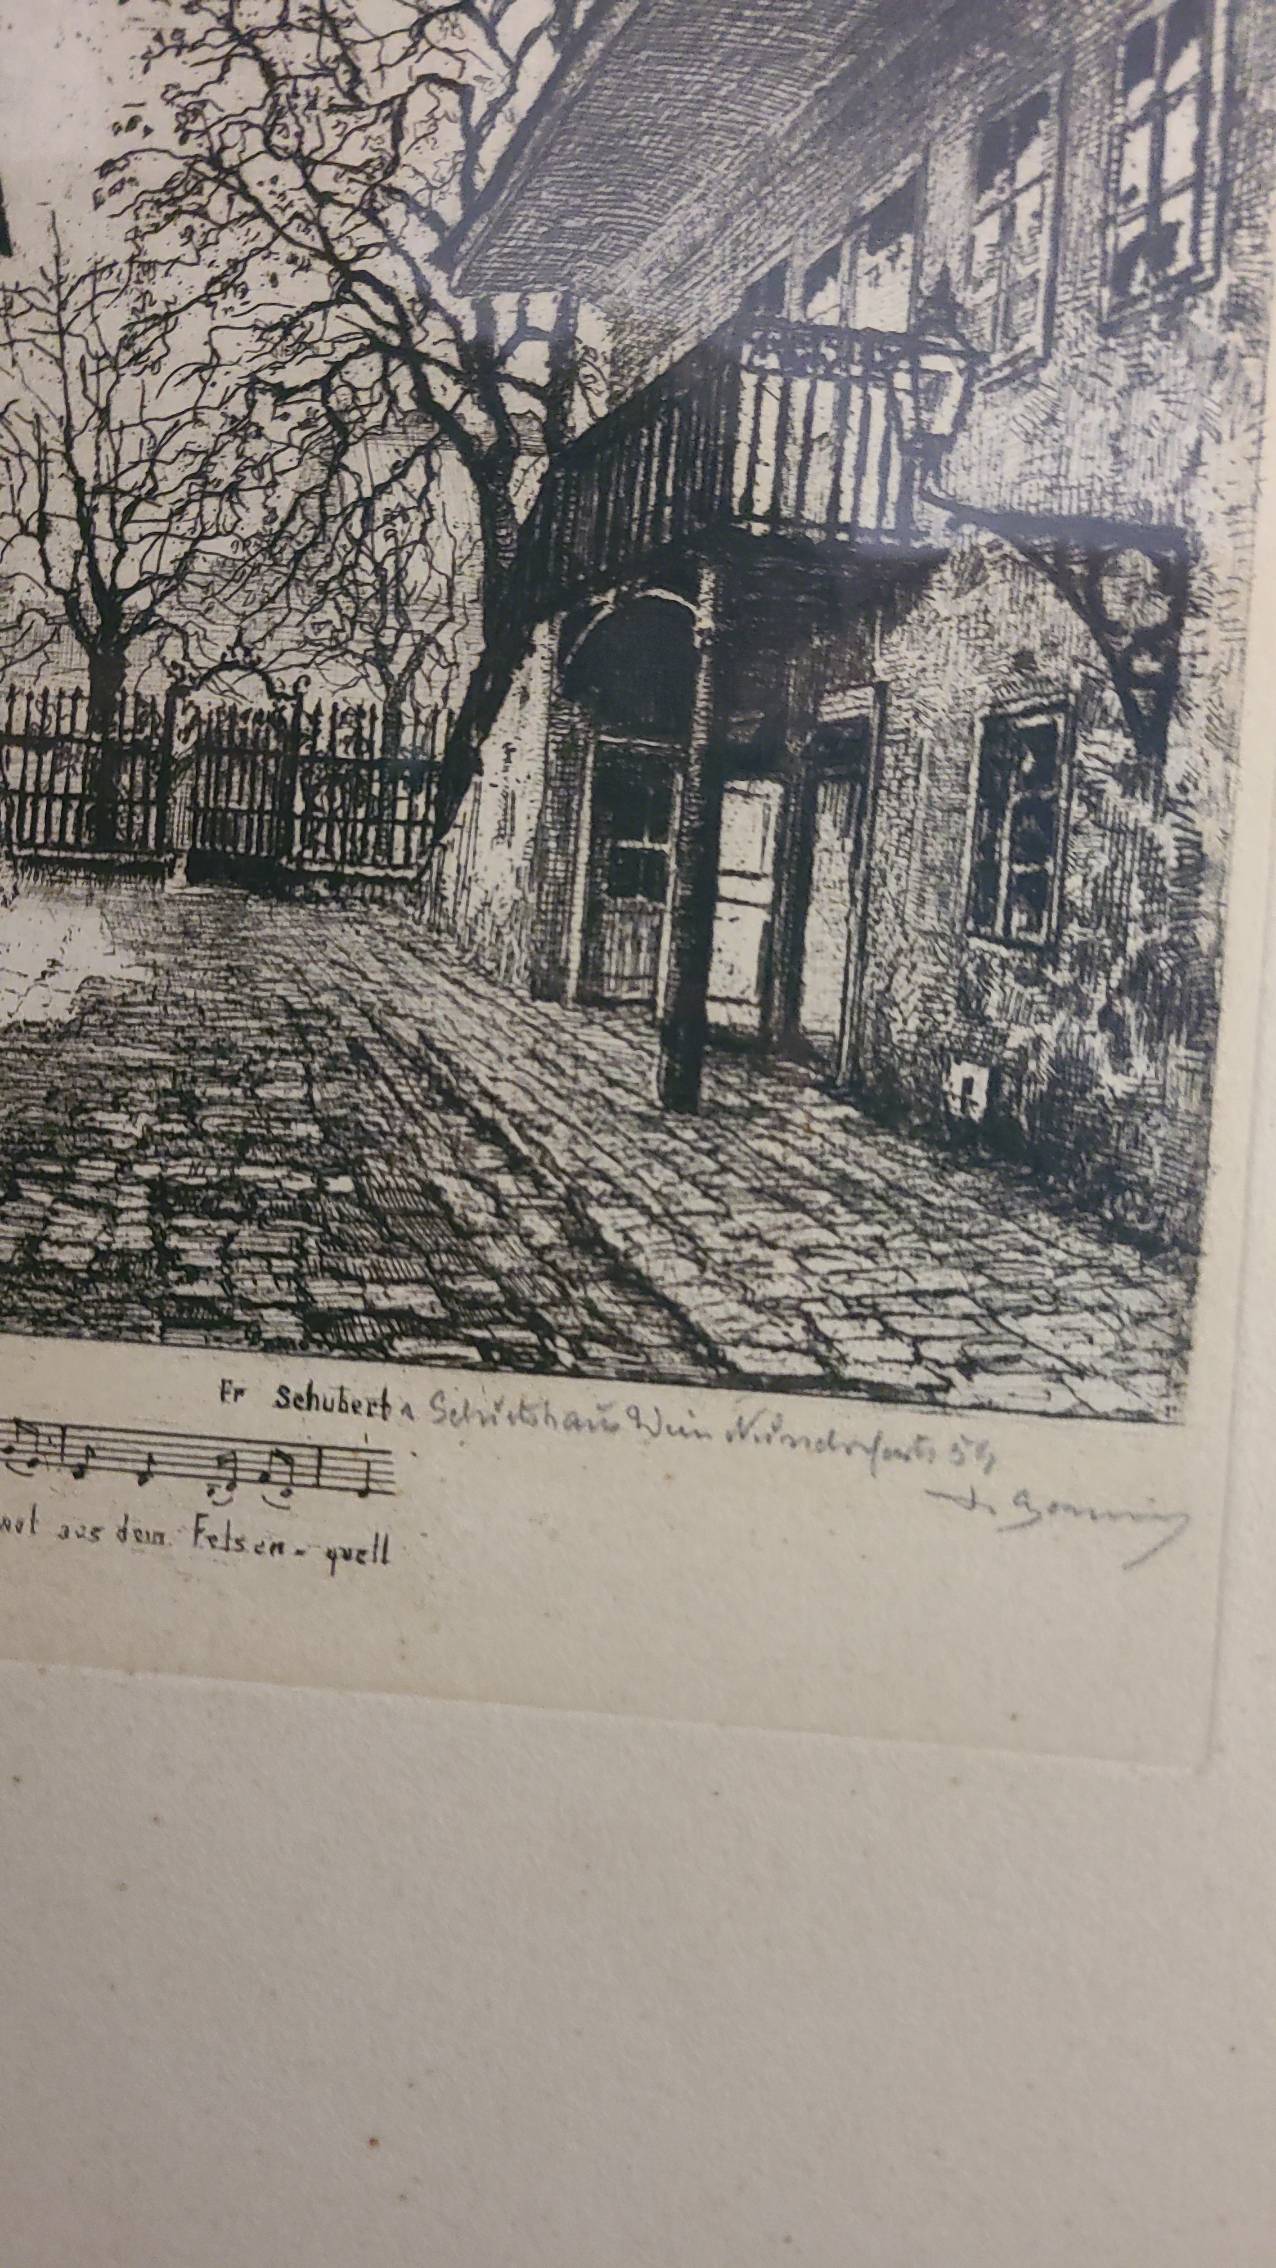 Fr Schubert s Geburtshaus Wien Nussdorferstr 54
aus dem Felsen - quell